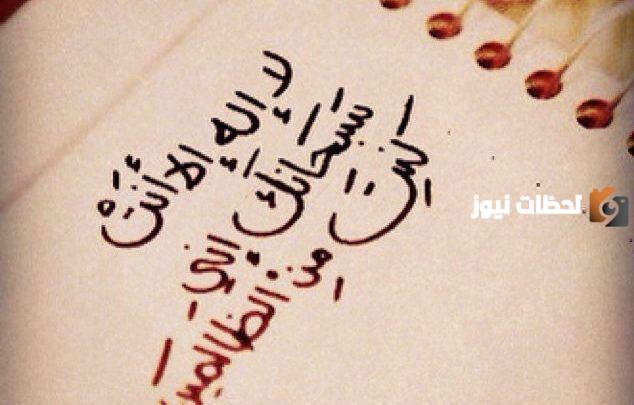 لا إله إلا أنتْ
سبحانك إني
كنت من الظالمين
لحظات نيوز